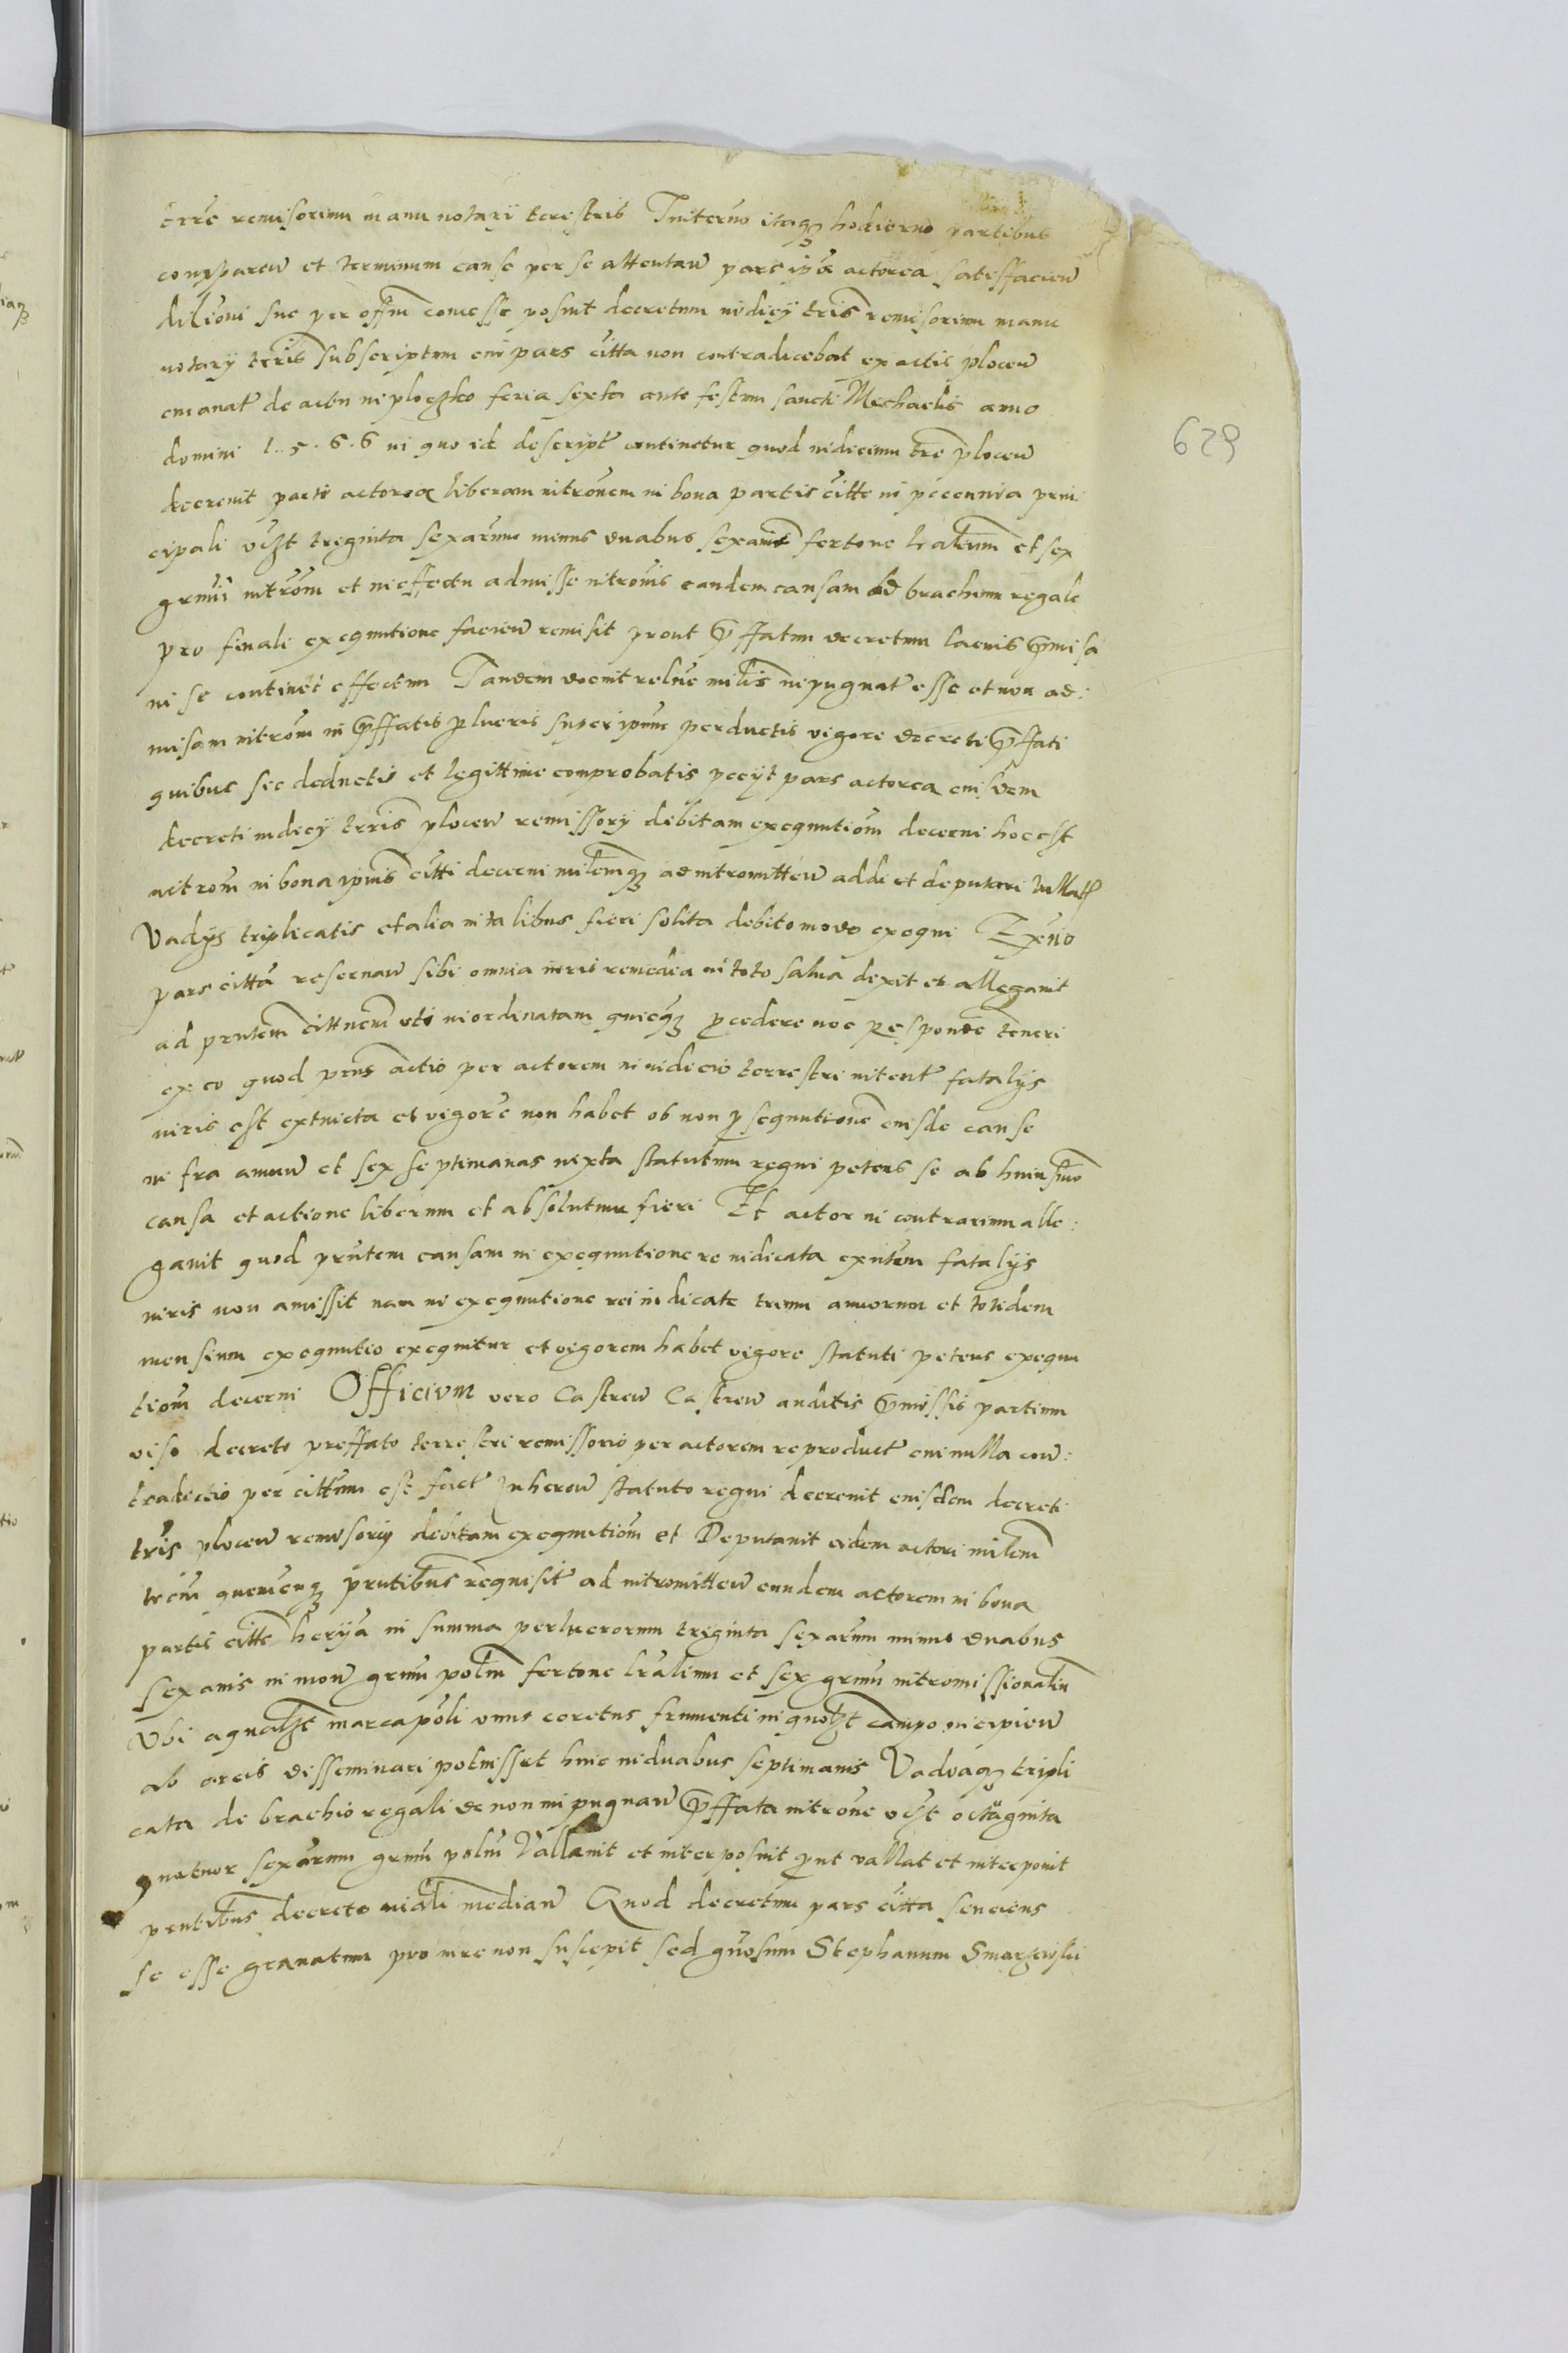 terre remisorium manu notarÿ terestris Initermo itaqȝ hodierno partibus
comparen et terminum cause per se attentan pars ipa actorea satisfacien
dilioni sue per offm concesse posuit decretum iudicÿ tris remisorium manu
notarÿ terris subscriptum cui pars citta non contradicebat ex actis plocen
emanat de actu in ploczko feria sexta ante festum sancti Michaelis anno
domini 1.5.6.6 in quo id descript continetur quod iudicium tre plocen
decrenit parti actoree liberam intronem in bona partis citte in peccunia prin
cipali vczt treginta sexarum minus duabus sexanis fertone lralium et sex
grnu introm et in effectu admisse intronis eandem causam ad brachium regale
pro finali exequutione facien remisit prout pffatum decretum lacius pmisa
in se continet effectum Tandem docuit relne milis inpugnat esse et non ad:
misam introm in pffatis plucris super ipm perductis vigore decreti pffati
quibus sic deductis et legittime comprobatis peciit pars actorea eiusdem
decreti iudicÿ terris plocen remissorÿ debitam exequutiom decerni hoc est
introm in bona ipius citti decerni milemqȝ ad intromitten addi et deputari
Vadÿs triplicatis et alia in talibus fieri solita debito modo exequi Exuo
pars citta reseruan sibi omnia iuris remedia in toto salua dexit et allegauit
ad prntem cittnem uti inordinatam guieqȝ pcedere noc respondē teneri
ex eo quod prns actio per actorem in iudicio terrestri intent fatalÿs
iuris est extincta et vigore non habet ob non psequutione eiusde cause
in fra annum et sex septimanas iuxta statutum regni petens se ab huiusmo
causa et actione liberum et absolutum fieri Et actor in contrarium alle:
gauit quod prntem causam in exequutione re iudicata exntem fatalÿs
iuris non amissit nam in exequutione rei iudicate trium annorum et totidem
mensium exequutio exequitur et vigorem habet vigore statuti petens exequu
tiom decerni Officium vero Castren Castren auditis pmissis partium
viso decreto preffato terrestri remissorio per actorem reproduct cui nulla con:
tradictio per cittum est fact Inheren statuto regni decrenit eiusdem decreti
tris plocen remisorÿ debitam exequutiom et Deputauit eidem actori milem
trem quemcuqȝ prntibus requisit ad intromitten eundem actorem in bona
partis citte in summa perlucrorum triginta sexarum minus duabus
sexanis in mon grnu polm fertone lralium et sex grnu intromissionaliu
Vbi aqualzt marca poli vnus coretus frumenti in quolzt campo incipien
ab areis disseminari potuisset hinc in duabus septimanis Vadiaqȝ tripli
cata de brachio regali de non inpugnan pffata introne vczt octuaginta
quatuor sexarum grnu polm Vallauit et interposuit put vallat et interponit
prntibus decreto iudiali median Quod decretum pars citta senciens
se esse grauatum pro iure non suscepit sed gnosum Stephanum Smarzewski
629